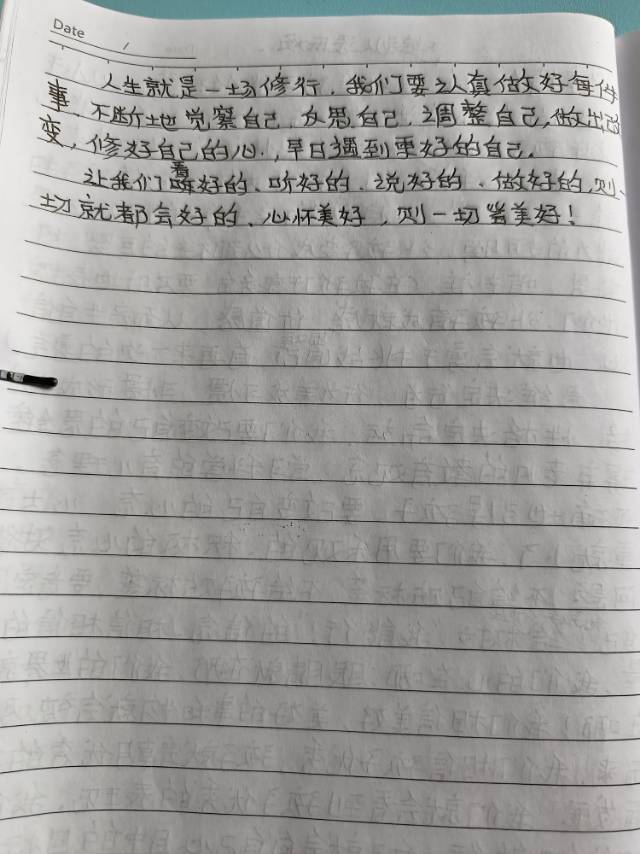 Date /
人生就是一场修行，我们要认真做好每件
事，不断地觉察自己，反思自己，调整自己，做出改
变，修好自己的心，早日遇到更好的自己。
让我们看好的、听好的、说好的、做好的，则一
切就都会好的、心怀美好，则一切皆美好！